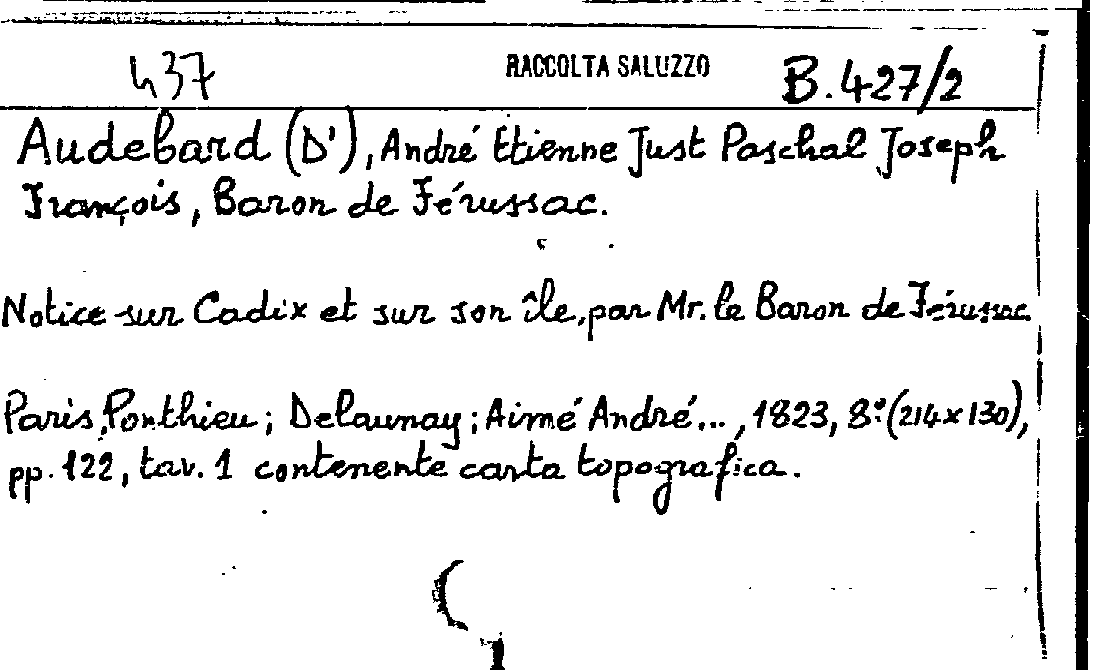 437 RACCOLTA SALUZZO B.427/2
Audebard (D'), André Etienne Just Paschal Joseph
François, Baron de Férussac.
Notice sur Cadix et sur son île, par Mr. le Baron de Férussac
Paris, Ponthieu; Delaunay; Aimé André..., 1823, 8º (214x130),
pp. 122, tav. 1 contenente carta topografica.